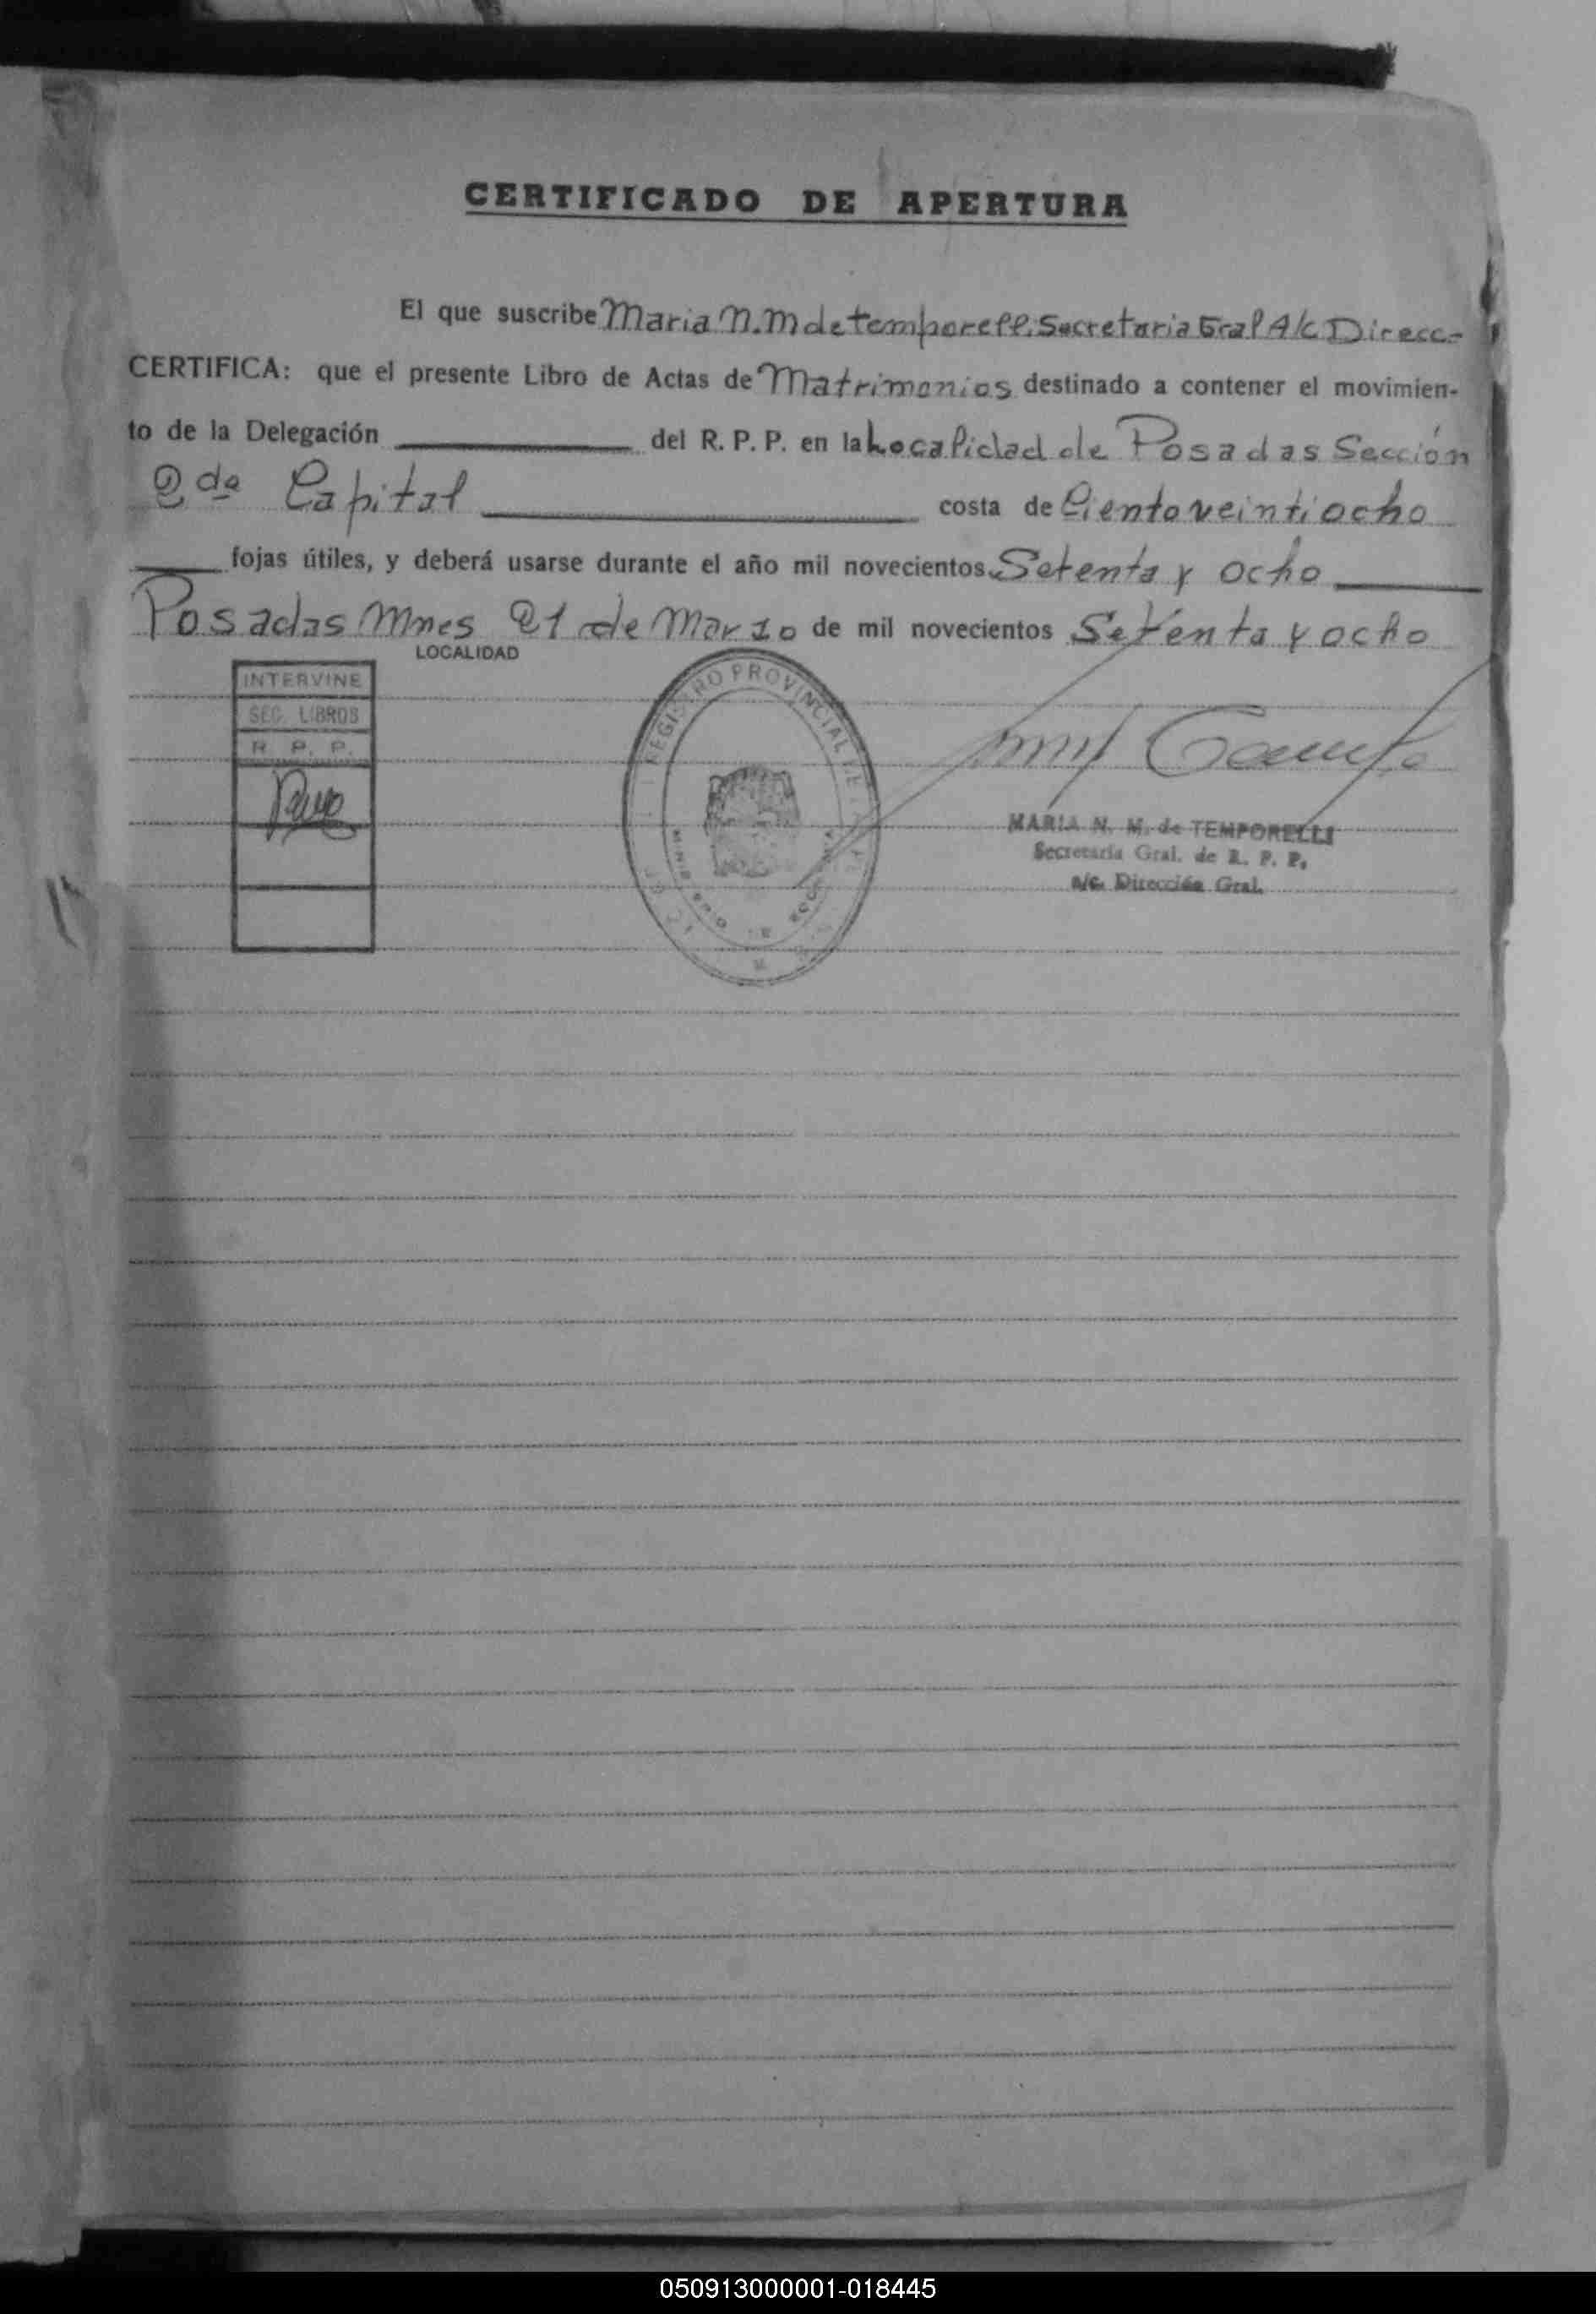 CERTIFICADO DE APERTURA
El que suscribe Maria N. M de temporell. Secretaria Gral A/c Direcc-
CERTIFICA: que el presente Libro de Actas de Matrimonios destinado a contener el movimien-
to de la Delegación del R. P. P. en la Localidad de Posadas Sección
2da Capital costa de Ciento veintiocho
fojas útiles, y deberá usarse durante el año mil novecientos Setenta y ocho
Posadas Mnes 21 de Marzo de mil novecientos Setenta y ocho
LOCALIDAD
INTERVINE
SEC. LIBROS
R. P. P.
REGISTRO PROVINCIAL DE
MINISTERIO DE
MARIA N. M. de TEMPORELLI
Secretaria Gral. de R. P. P.
a/c. Dirección Gral.
050913000001-018445